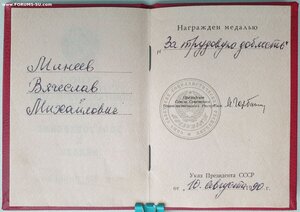 www.FORUMS-SU.com
Манеев
Вячеслав
Михайлович
Награжден медалью
„За трудовую доблесть"
Президент
Союза Советских
Социалистических Республик
М. Горбачев
Указ Президента СССР
от 10 августа 1990 г.